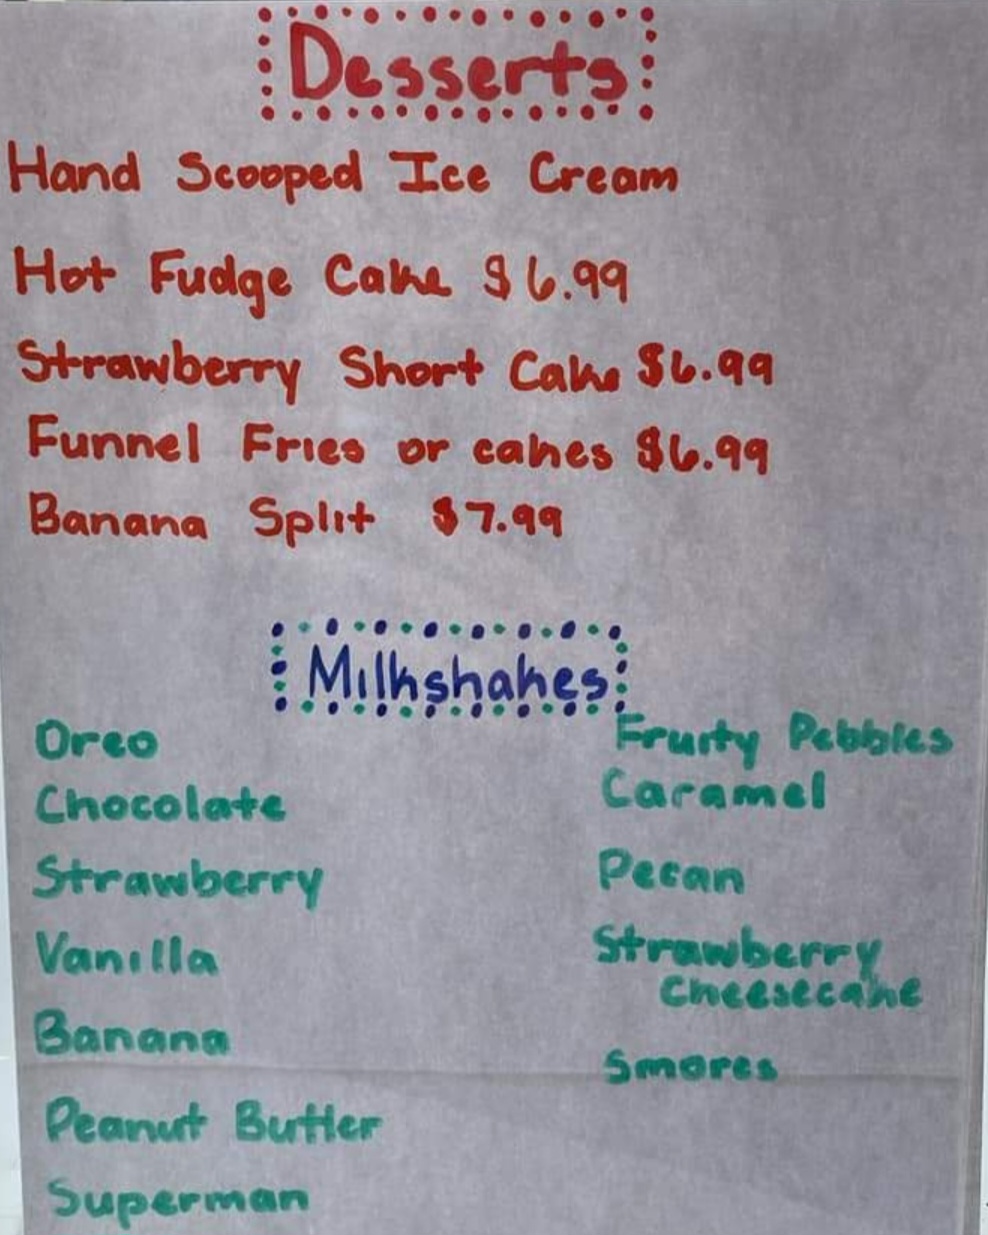 Desserts
Hand Scooped Ice Cream
Hot Fudge Cake $6.99
Strawberry Short Cake $6.99
Funnel Fries or cakes $6.99
Banana Split $7.99
Milkshakes
Oreo
Chocolate
Strawberry
Vanilla
Banana
Peanut Butter
Superman
Fruity Pebbles
Caramel
Pecan
Strawberry
Cheesecake
Smores